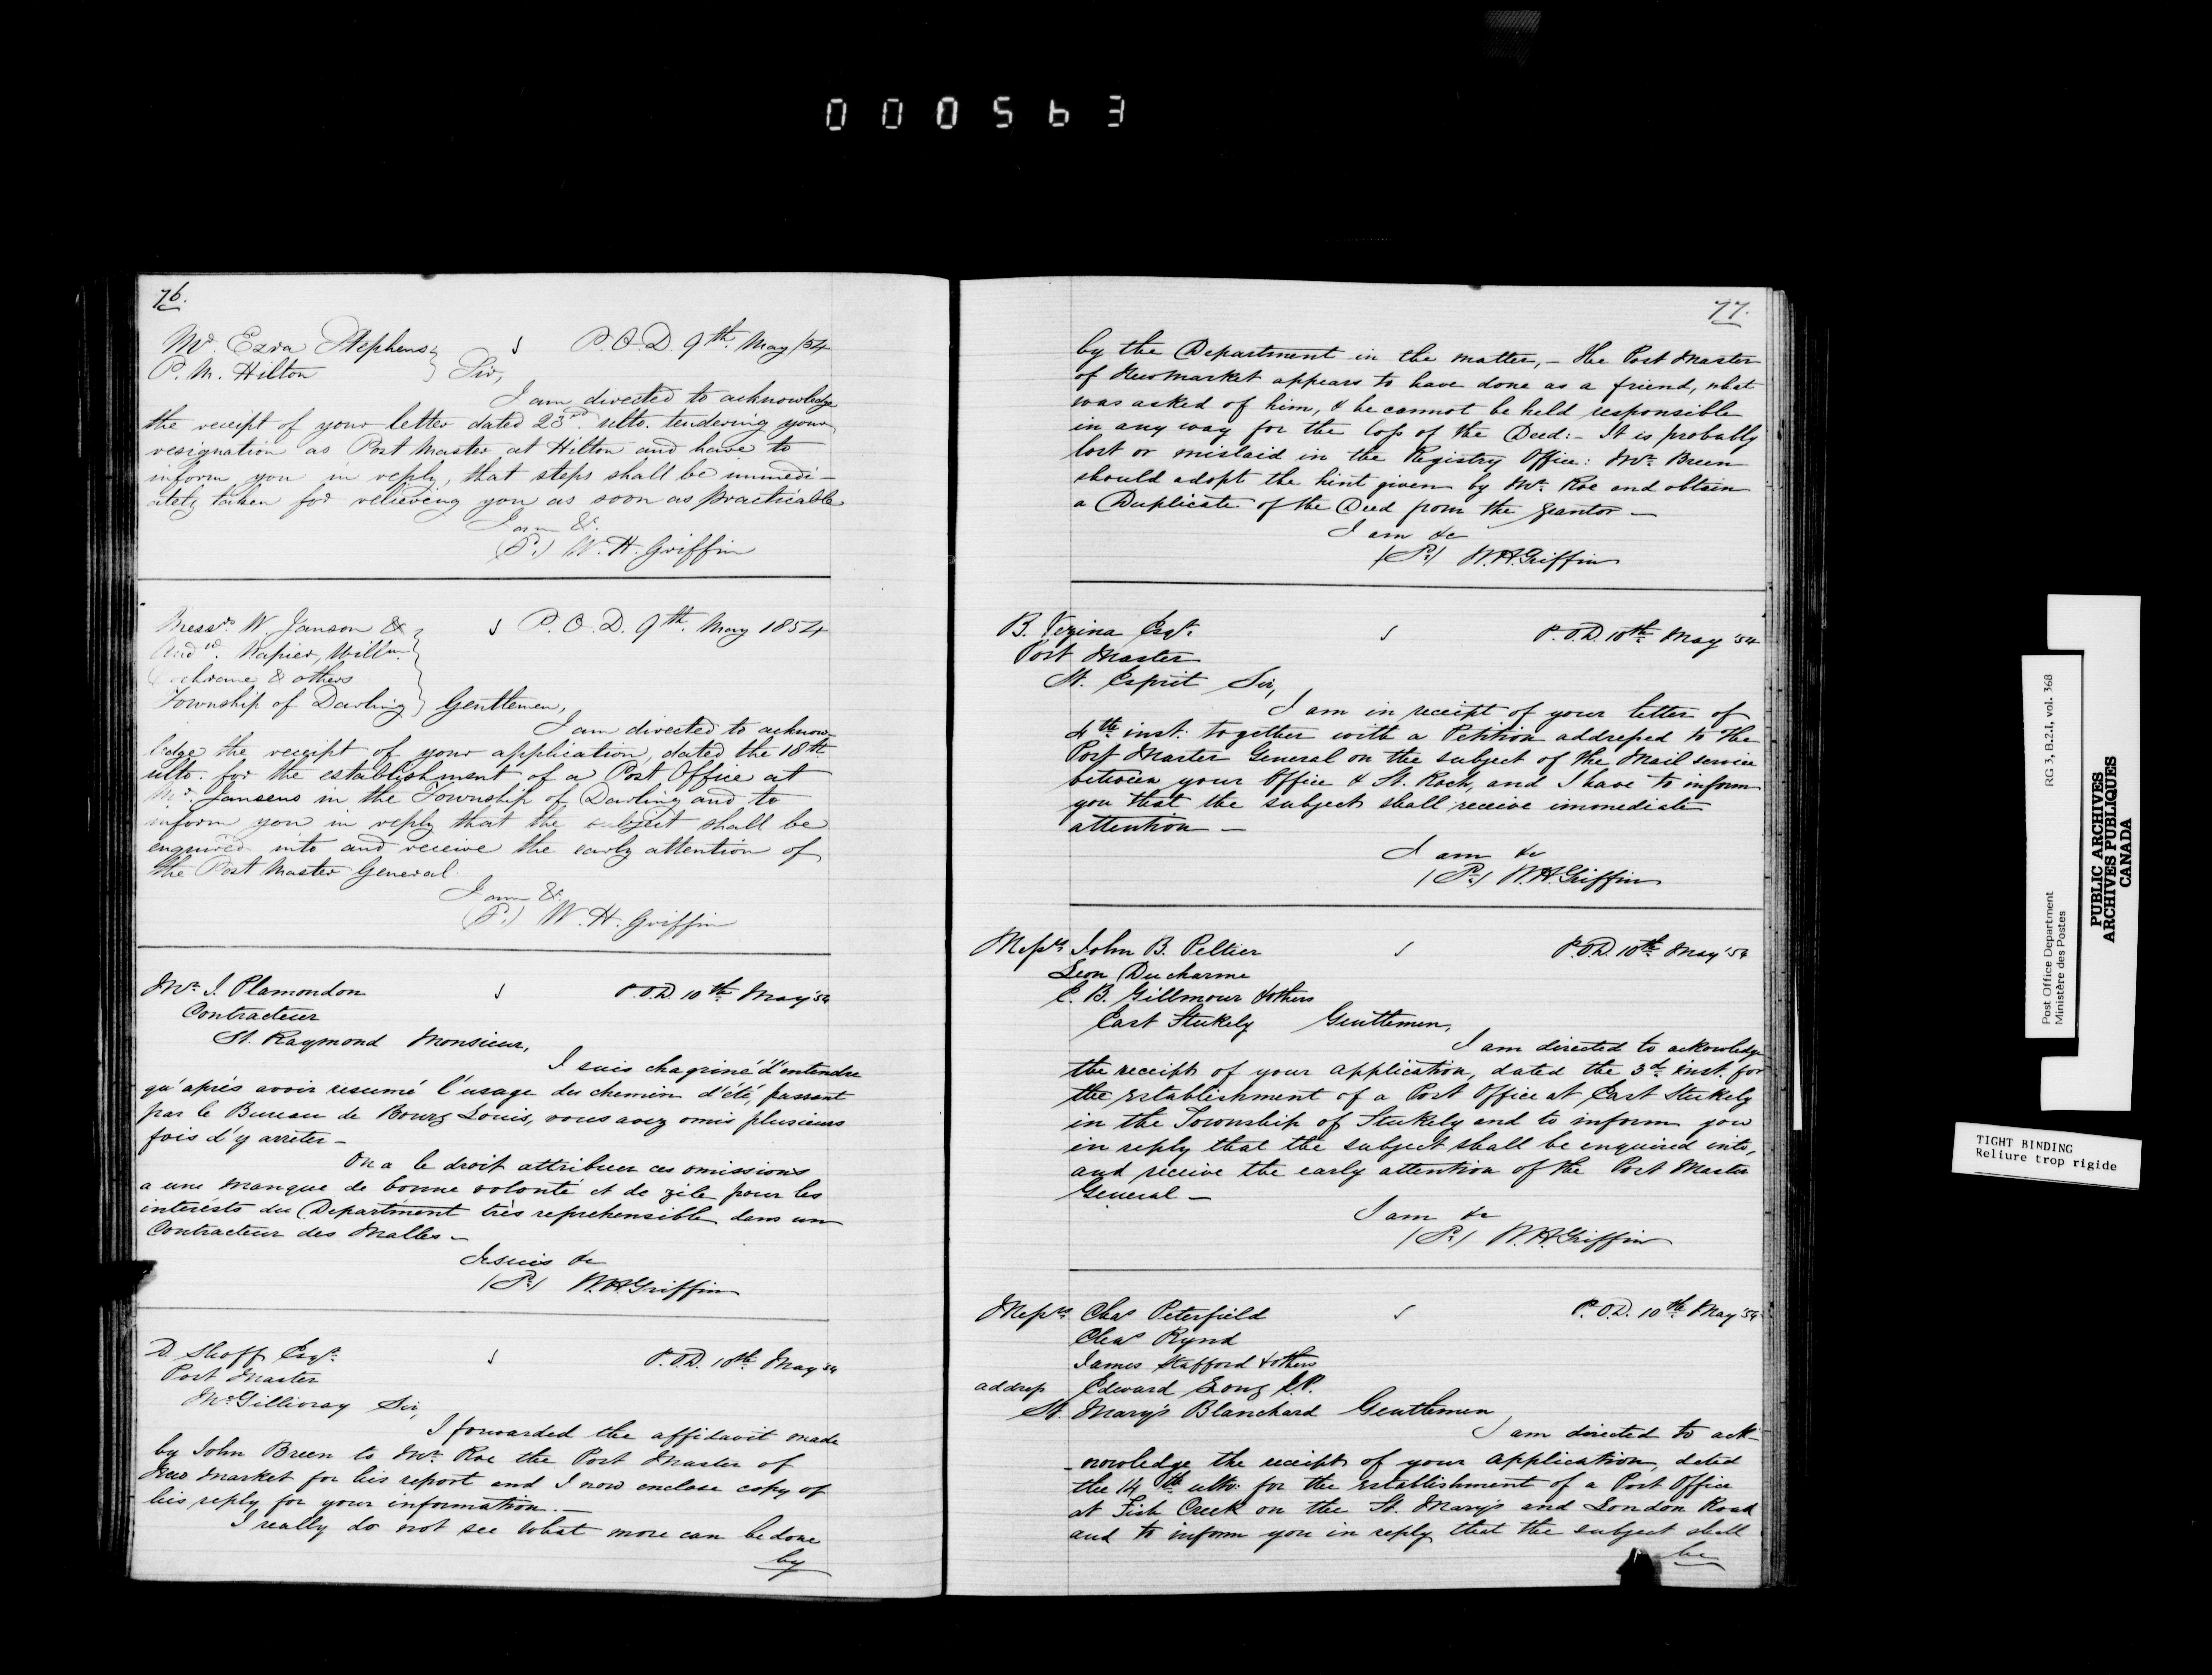 000563
76.
Mr. Ezra Stephens } P.O.D. 9th May /54
P. M. Hilton } Sir,
I am directed to acknowledge
the receipt of your letter dated 23rd. ulto. tendering your
resignation as Post Master at Hilton and have to
inform you in reply, that steps shall be immedi-
ately taken for relieving you as soon as practicable
I am &c.
(S.) W. H. Griffin
Messrs. W. Janson & P.O.D. 9th. May 1854
Andw. Napier, Willm.
Cochrane & others
Township of Darling } Gentlemen,
I am directed to acknow-
ledge the receipt of your application, dated the 18th
ulto. for the establishment of a Post Office at
Mr. Jansens in the Township of Darling and to
inform you in reply that the subject shall be
enquired into and receive the early attention of
the Post Master General.
I am &c.
(S.) W. H. Griffin
Mr. J. Plamondon P.O.D 10th May '54
Contracteur
St. Raymond Monsieur,
I suis chagriné d'entendre
qu'aprés avoir resumé l'usage du chemin d'été, passant
par le Bureau de Bourg Louis, vous avez omis plusieurs
fois d'y arrêter -
On a le droit attribuer ces omissions
a une manque de bonne volonté et de zile pour les
interésts du Départment très reprehensible dans un
Contracteur des Malles -
Je suis &c
(S.) W.H.Griffin
D. Shoff Esqr. P.O.D. 10th May '54
Post Master
McGillivray Sir,
I forwarded the affidavit made
by John Breen to Mr. Roe the Post Master of
New Market for his report and I now enclose copy of
his reply for your information. -
I really do not see what more can be done
by
77.
by the Department in the matter, - The Post Master
of Newmarket appears to have done as a friend, what
was asked of him, & he cannot be held responsible
in any way for the loss of the Deed: - It is probably
lost or mislaid in the Registry Office: Mr. Breen
should adopt the hint given by Mr. Roe and obtain
a Duplicate of the Deed from the grantor -
I am &c
(S.) W.H.Griffin
B. Vezina Esqr. P.O.D 10th May '54
Post Master
St. Esprit Sir,
I am in receipt of your letter of
4th inst. together with a Petition addressed to the
Post Master General on the subject of the Mail service
between your Office & St. Roch, and I have to inform
you that the subject shall receive immediate
attention -
I am &c
(S.) W.H.Griffin
Messrs. John B. Peltier P.O.D. 10th May '54
Leon Ducharme
C. B. Gillmour & others
East Stukely Gentlemen,
I am directed to acknowledge
the receipt of your application, dated the 3d. inst. for
the establishment of a Post Office at East Stukely
in the Township of Stukely and to inform you
in reply that the subject shall be enquired into,
and receive the early attention of the Post Master
General -
I am &c
(S.) W.H.Griffin
Messrs Chas Peterfield P.O.D. 10th May '54
Chas Rynd
James Stafford & others
address Edward Long J.P.
St. Mary's Blanchard Gentlemen
I am directed to ack-
-nowledge the receipt of your application, dated
the 14th ulto: for the establishment of a Post Office
at Fish Creek on the St. Mary's and London Road
and to inform you in reply that the subject shall
be
Post Office Department RG 3, B.2.I, vol. 368
Ministère des Postes
PUBLIC ARCHIVES
ARCHIVES PUBLIQUES
CANADA
TIGHT BINDING
Reliure trop rigide